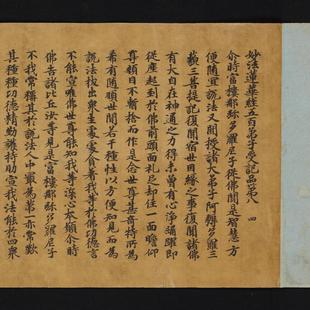 妙法蓮華經五百弟子受記品第八 四
尒時富樓那弥多羅尼子從佛聞是智慧方
便隨宜說法又聞授諸大弟子阿耨多羅三
藐三菩提記復聞宿世因緣之事復聞諸佛
有大自在神通之力得未曾有心淨踊躍即
從座起到於佛前頭面礼足却住一面瞻仰
尊顏目不暫捨而作是念世尊甚奇特所為
希有隨順世間若干種性以方便知見而為
說法拔出衆生處處貪著我等於佛功德言
不能宣唯佛世尊能知我等深心本願尒時
佛告諸比丘汝等見是富樓那弥多羅尼子
不我常稱其於說法人中冣為第一亦常歎
其種種功德精勤護持助宣我法能於四衆